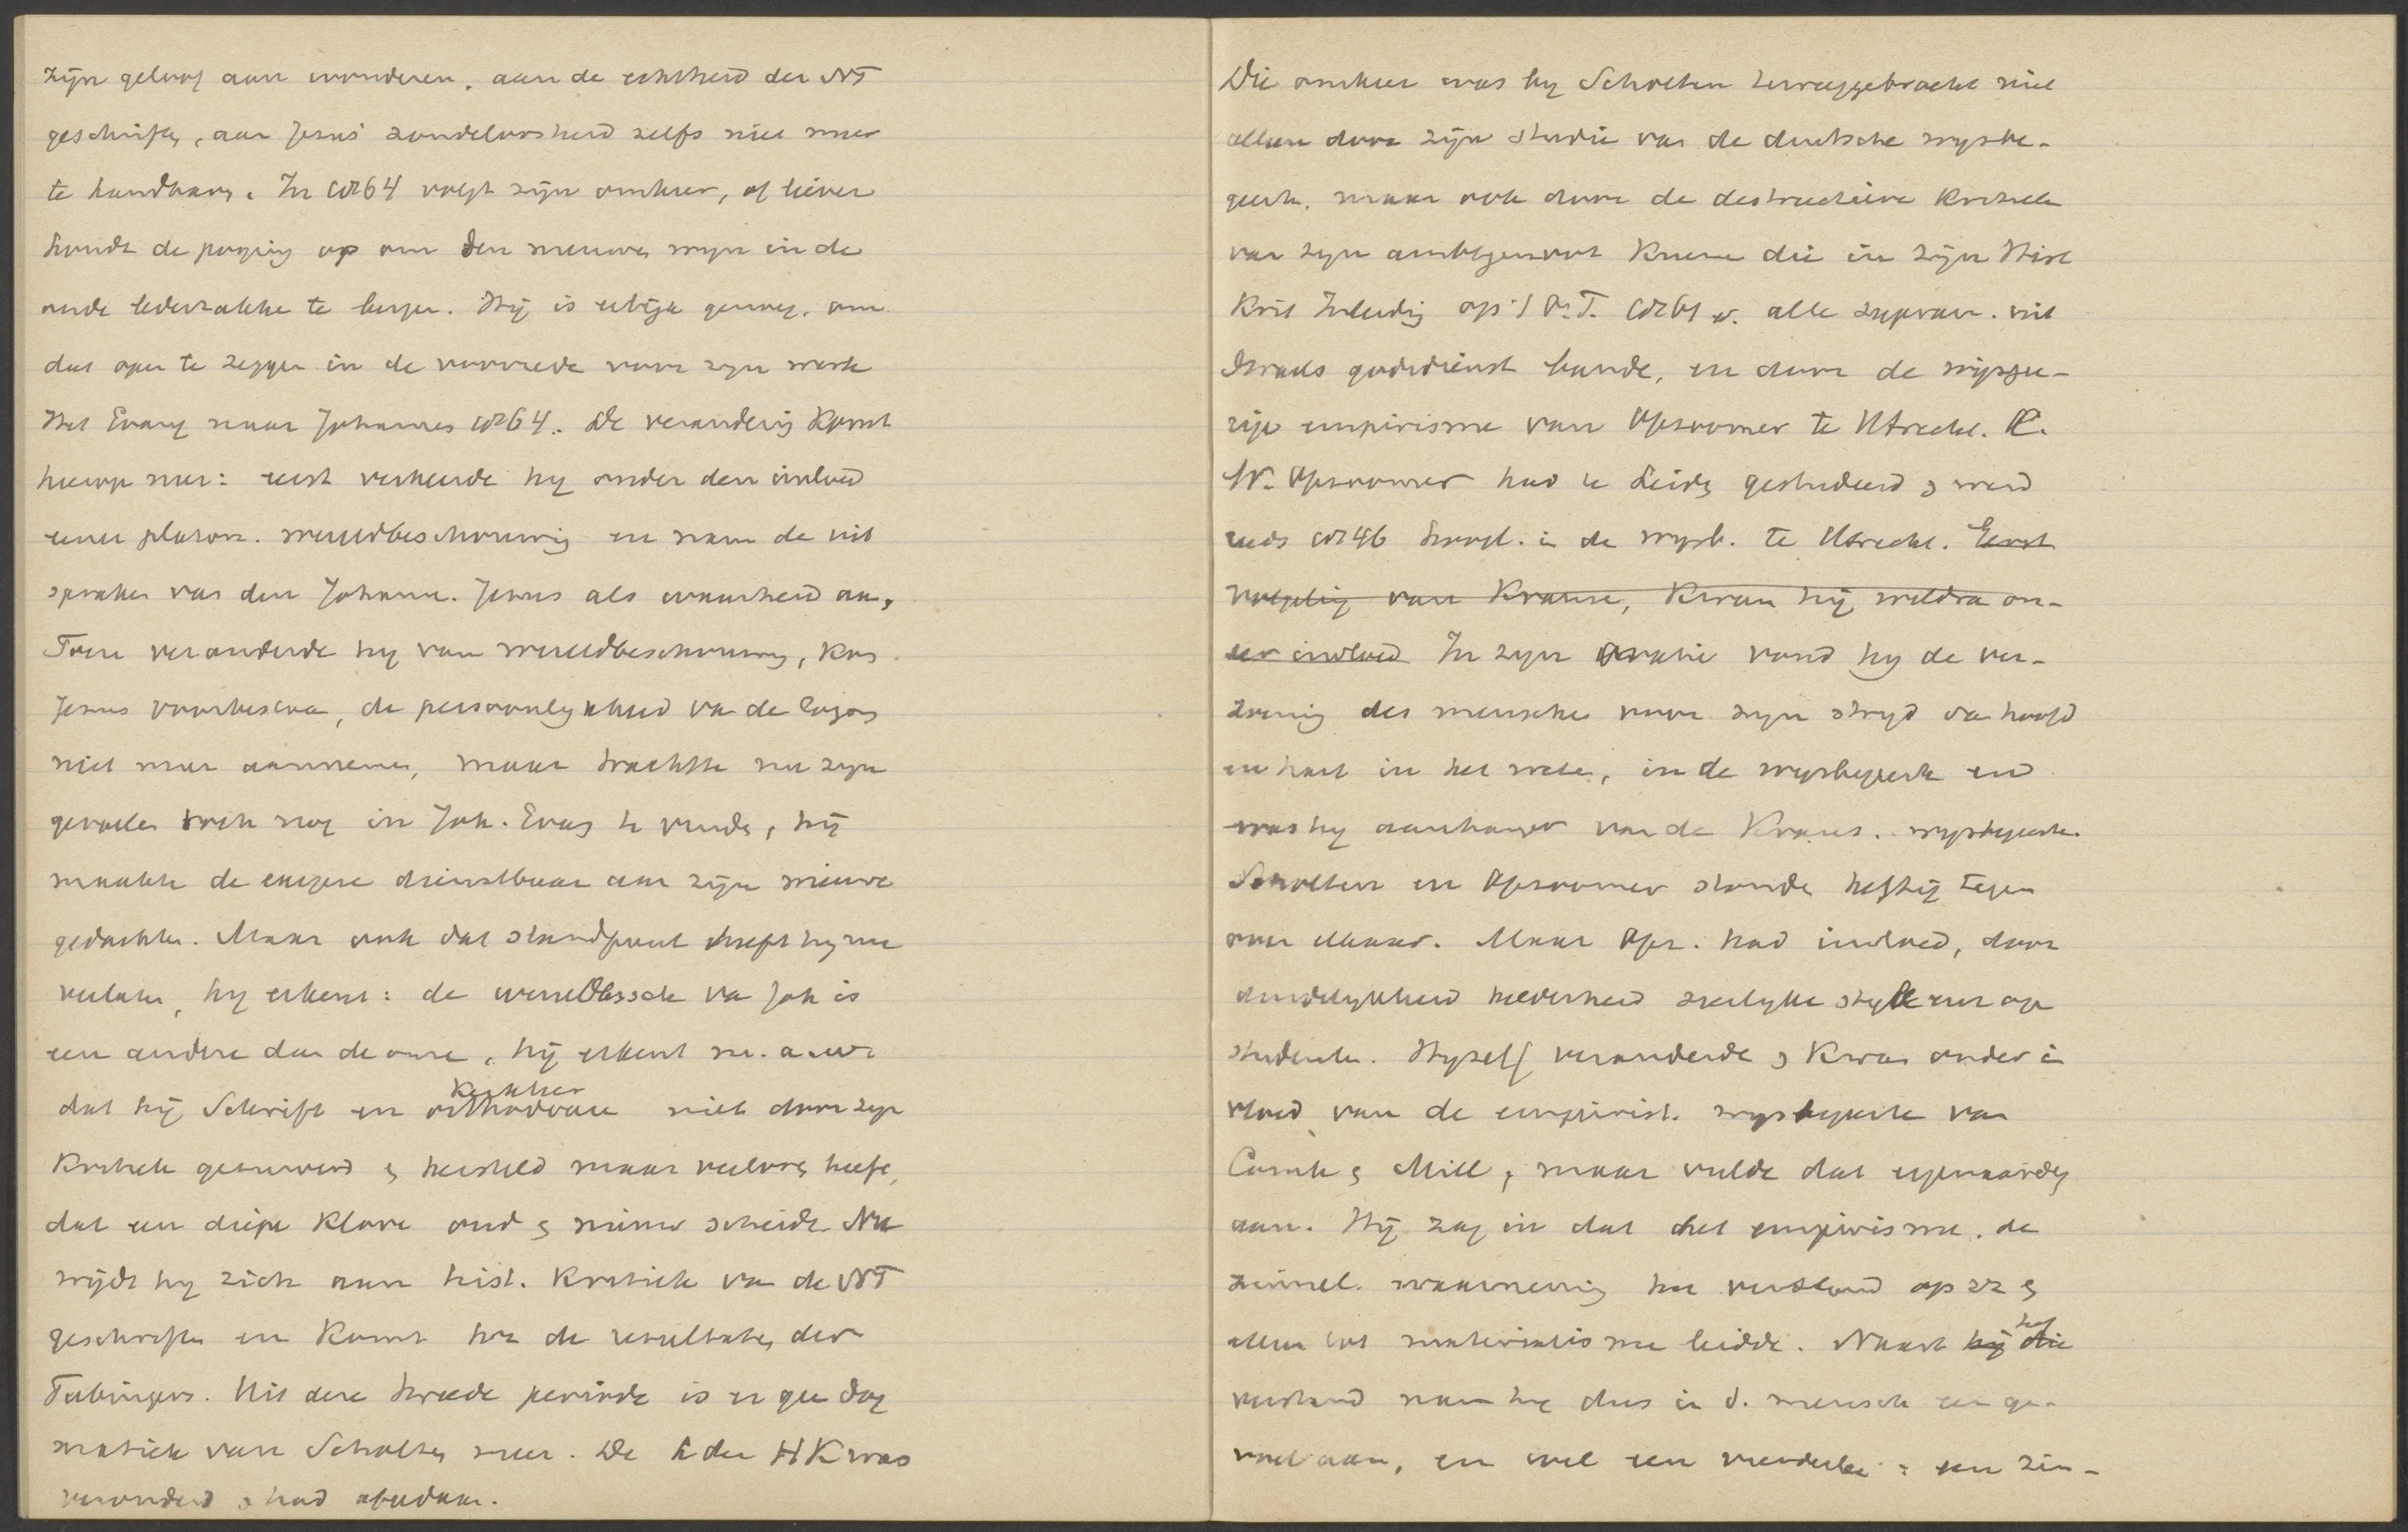 zijn geloof aan wonderen, aan de echtheid der NT
geschriften, aan Jesus' zondeloosheid zelfs niet meer
te handhaven. In 1864 volgt zijn omkeer, of liever
houdt de poging op om den nieuwen wijn in de
oude lederzakken te bergen. Hij is eerlijk genoeg, om
dat open te zeggen in de voorrede voor zijn werk
Het Evang naar Johannes 1864. De verandering komt
hierop neer: eerst verkeerde hij onder den invloed
eener platon. wereldbeschouwing en nam de uit
spraken van den Johann. Jesus als waarheid aan,
Toen veranderde hij van wereldbeschouwing, kon
Jesus voorbestaan, de persoonlijkheid van de logos
niet meer aannemen, maar trachtte nu zijn
gevoelen toch nog in Joh. Evang te vinden, hij
maakte de exegese dienstbaar aan zijn nieuwe
gedachten. Maar ook dat standpunt heeft hij nu
verlaten, hij erkent: de wereldbesch van Joh is
een andere dan de onze, hij erkent m. a. w.
dat hij Schrift en kerkleer orthodoxie niet door zijn
kritiek gezuiverd en hersteld maar verloren heeft,
dat een diepe klove oud en nieuw scheidt. Nu
wijdt hij zich aan hist. kritiek van de NT
geschriften en komt tot de resultaten der
Tubingers. Uit deze tweede periode is er geen dog
matiek van Scholten meer. De L der HK was
veranderd en had afgedaan.
Die omkeer was bij Scholten teweeggebracht niet
alleen door zijn studie van de duitsche wijsbe-
geerte, maar ook door de destructieve kritiek
van zijn ambtgenoot Kuenen die in zijn Hist
Krit Inleiding op 't O.T. 1861 v. alle supran. uit
Israels godsdienst bande, en door de wijsgee-
rige empirisme van Opzoomer te Utrecht. C.
W. Opzoomer had te Leiden gestudeerd en werd
reeds 1846 hoogl. in de wijsb. te Utrecht. Eerst
volgeling van Krause, kwam hij weldra on-
der invloed In zijn oratie vond hij de ver-
zoening des menschen voor zijn strijd van hoofd
en hart in het weten, in de wijsbegeerte en
was hij aanhanger van de Kraus. wijsbegeerte.
Scholten en Opzoomer stonden heftig tegen
over elkaar. Maar Opz. had invloed, door
duidelijkheid helderheid sierlijke stijl enz op
studenten. Hijzelf veranderde en kwam onder in
vloed van de empirist. wijsbegeerte van
Comte en Mill, maar vulde dat eigenaardig
aan. Hij zag in dat het empirisme, de
zinnel. waarneming het verstand op zz en
alleen tot materialisme leidde. Naast hij die het
verstand nam hij dus in d. mensch een ge-
voel aan, en wel een vierderlei: een zin-